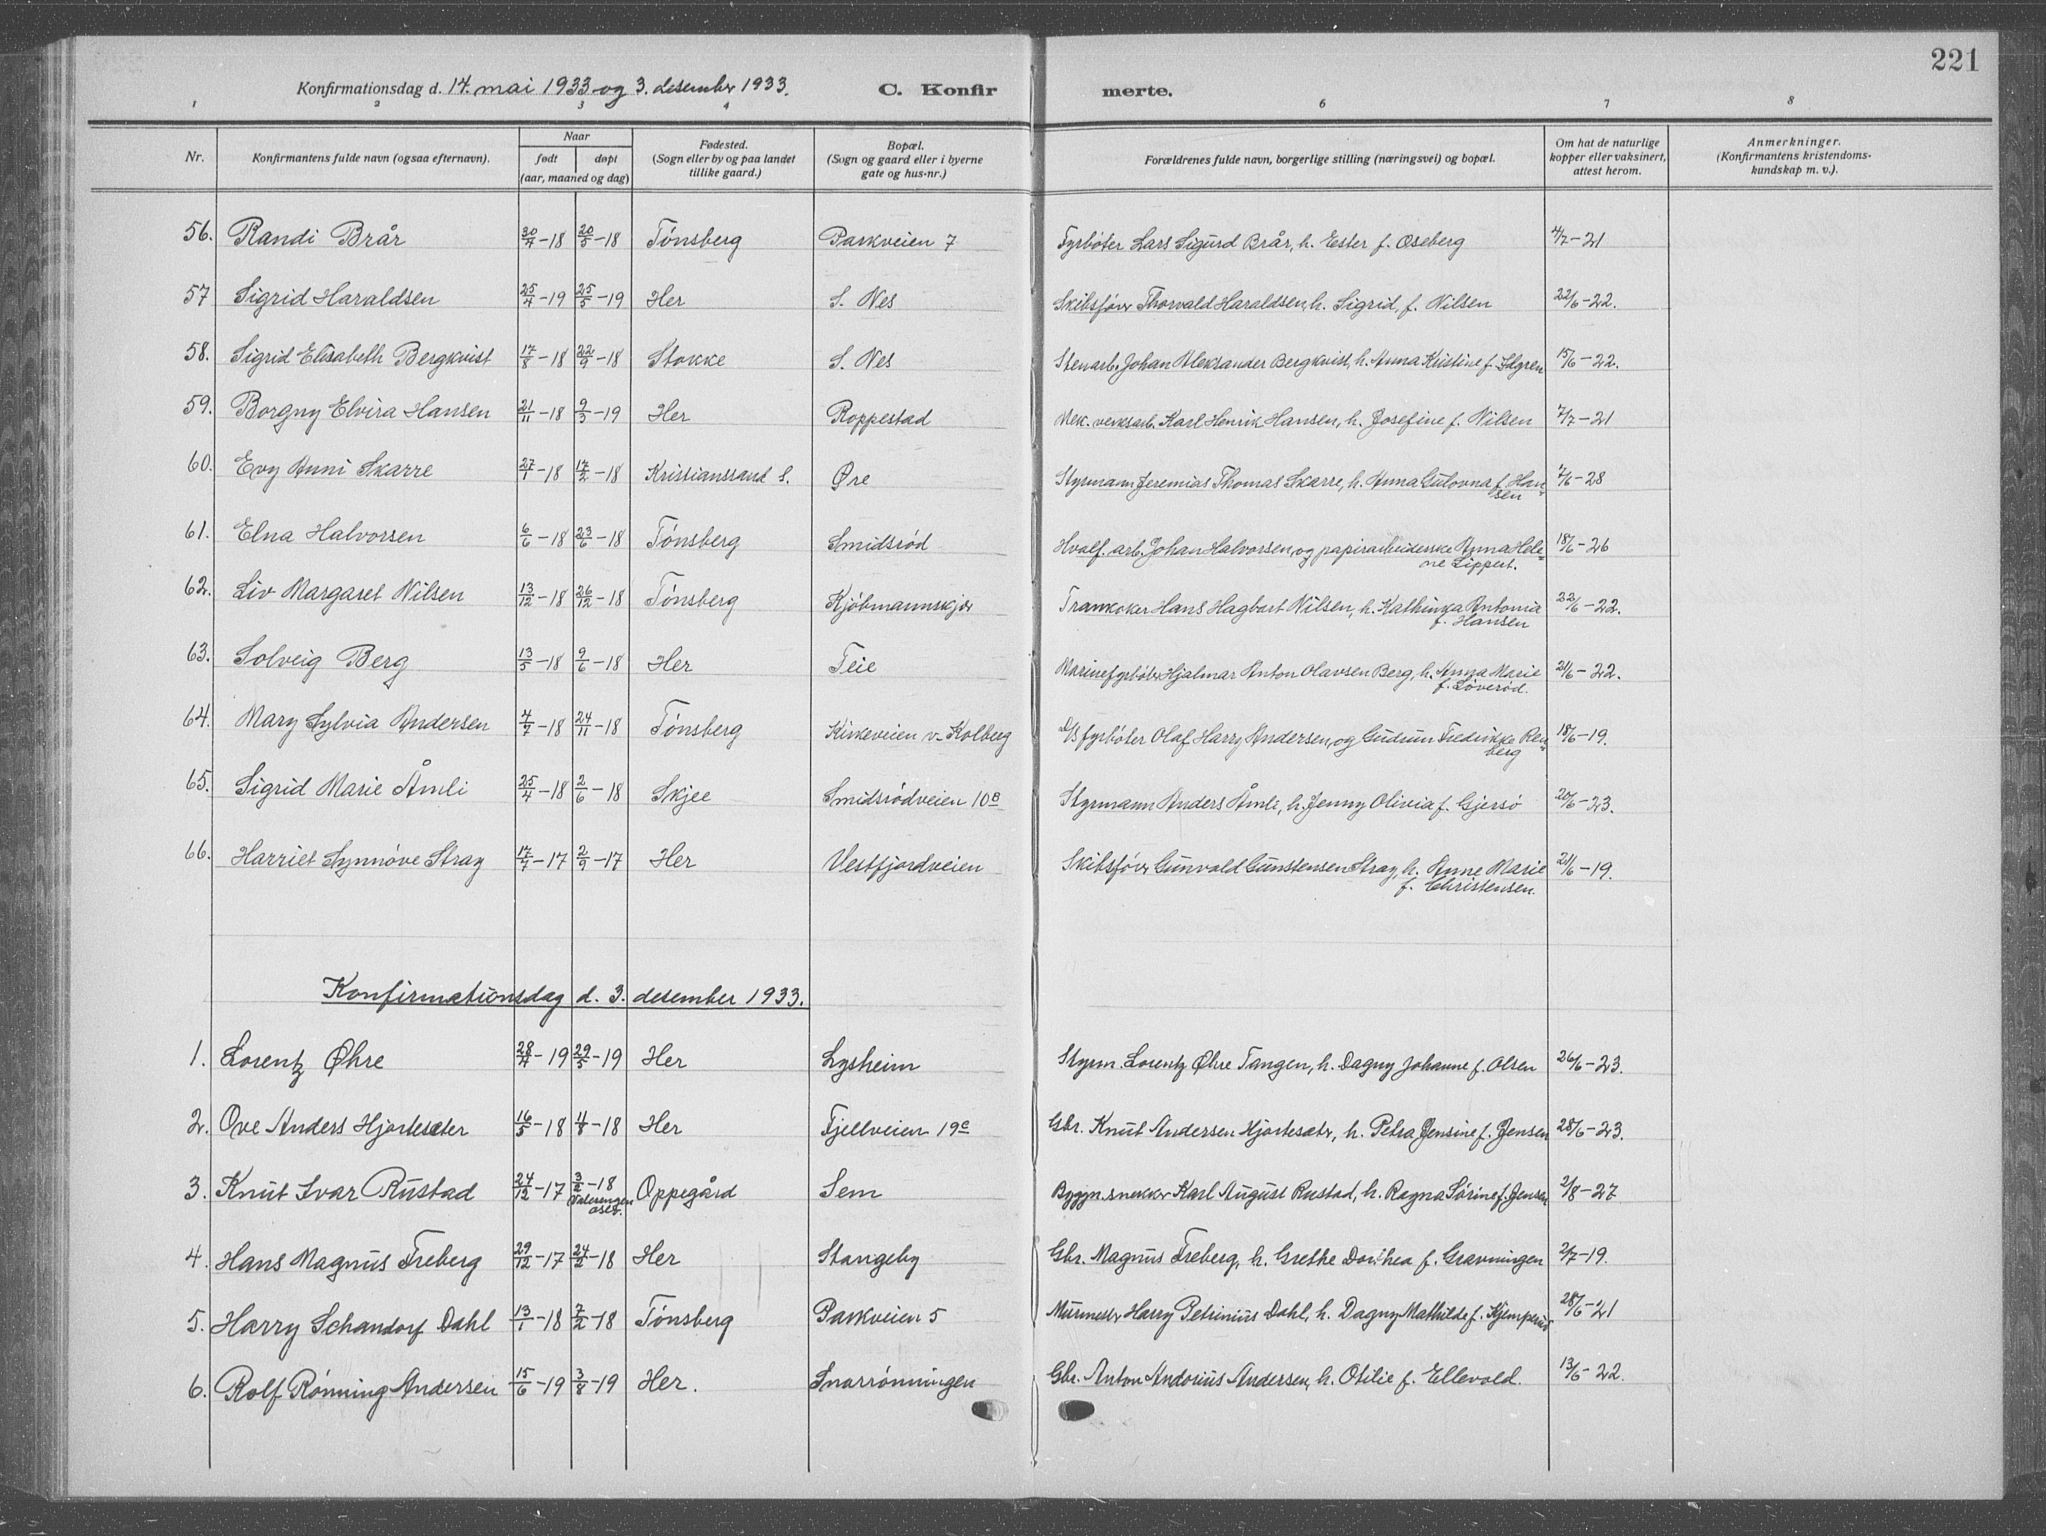 221
Konfirmationsdag d. 14. mai 1933 og 3. desember 1933. C. Konfir merte.
1 2 3 4 6 7 8
Nr. Konfirmantens fulde navn (ogsaa efternavn). Naar født døpt (aar, maaned og dag) Fødested. (Sogn eller by og paa landet tillike gaard.) Bopæl. (Sogn og gaard eller i byerne gate og hus-nr.) Forældrenes fulde navn, borgerlige stilling (næringsvei) og bopæl. Om hat de naturlige kopper eller vaksinert, attest herom. Anmerkninger. (Konfirmantens kristendoms-kundskap m. v.).
56. Randi Brår 30/4-18 20/5-18 Tønsberg Parkveien 7 Fyrbøter Lars Sigurd Brår, h. Ester f. Oseberg 4/7-21
57 Sigrid Haraldsen 25/4-19 25/5-19 Her S. Nes Skibsfører Thorvald Haraldsen, h. Sigrid, f. Nilsen 22/6-22.
58. Sigrid Elisabeth Bergkvist 17/8-18 22/9-18 Stokke S. Nes Stenarb. Johan Aleksander Bergkvist, h. Anna Kristine f. Idgren 15/6-22.
59. Borgny Elvira Hansen 21/11-18 9/3-19 Her Roppestad Mek. verksarb. Karl Henrik Hansen, h. Josefine f. Nilsen 7/7-21
60. Evy Anni Skarre 27/1-18 17/2-18 Kristianssand S. Øre Styrmann Jeremias Thomas Skarre, h. Anna Gulovna f. Han-
sen 7/6-28
61. Elna Halvorsen 6/6-18 23/6-18 Tønsberg Smidsrød Hvalf. arb. Johan Halvorsen, og papirarbeiderske Anna Hele-
ne Lippert. 18/6-26
62. Liv Margaret Nilsen 13/12-18 26/12-18 Tønsberg Kjøbmannskjær Trankoker Hans Hagbart Nilsen, h. Kathinka Antonia
f. Hansen 22/6-22.
63. Solveig Berg 13/5-18 9/6-18 Her Teie Marinefyrbøter Hjalmar Anton Olavsen Berg, h. Anna Marie
f. Løverød. 21/6-22.
64. Mary Sylvia Andersen 4/7-18 24/11-18 Tønsberg Kirkeveien v. Kolberg D/S fyrbøter Olaf Harry Andersen, og Gudrun Fredrikke Ren-
berg 18/6-19.
65. Sigrid Marie Åmli 25/4-18 2/6-18 Skjee Smidsrødveien 10B Styrmann Anders Åmli, h. Jenny Olivia f. Gjersø 20/6-23.
66. Harriet Synnøve Stray 17/7-17 2/9-17 Her Vestfjordveien Skibsfører Gunvald Gunstensen Stray, h. Anne Marie
f. Christensen. 21/6-19.
Konfirmationsdag d. 3. desember 1933.
1. Lorentz Øhre 28/4-19 29/5-19 Her Lysheim Styrm. Lorentz Øhre Tangen, h. Dagny Johanne f. Olsen 26/6-23.
2. Ove Anders Hjortesæter 16/5-18 4/8-18 Her Fjellveien 19c Gbr. Knut Andersen Hjortesæter, h. Petra Jensine f. Jensen 28/6-23.
3. Knut Ivar Rustad 24/12-17 3/2-18 Oppegård Sem Byggn.snekker Karl August Rustad, h. Ragna Sørine f. Jensen 2/8-27
4. Hans Magnus Freberg 29/12-17 24/2-18 Her Stangeby Gbr. Magnus Freberg, h. Grethe Dorthea f. Gravningen 2/7-19.
5. Harry Schandorf Dahl 13/1-18 7/2-18 Tønsberg Parkveien 5 Murmester Harry Petrinius Dahl, h. Dagny Mathilde f. 28/6-21
6. Rolf Rønning Andersen 15/6-19 3/8-19 Her. Snarrønningen Gbr. Anton Andorius Andersen, h. Otilie f. Ellevold. 13/6-22.